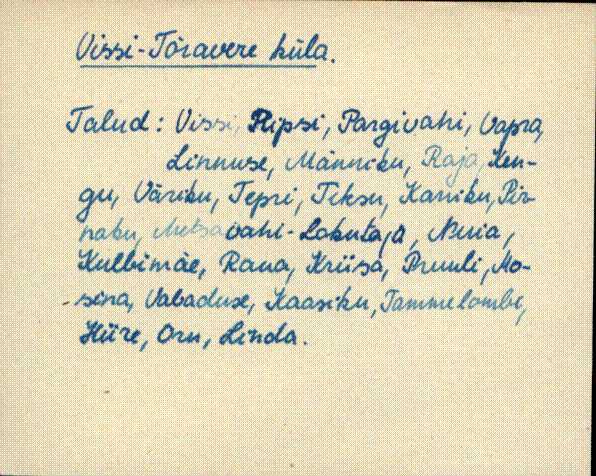 Vissi-Tõravere küla.
Talud: Vissi, Ripsi, Pargivahi, Vapra,
Linnuse, Männiku, Raja, Ken-
gu, Väriku, Tepri, Teksu, Kaniku, Pir-
naku, Metsavahi-Lokutaja, Nuia,
Kulbimäe, Raua, Kriisa, Pruuli, Mo-
sina, Vabaduse, Kaasiku, Tammelombi,
Hiire, Oru, Linda.